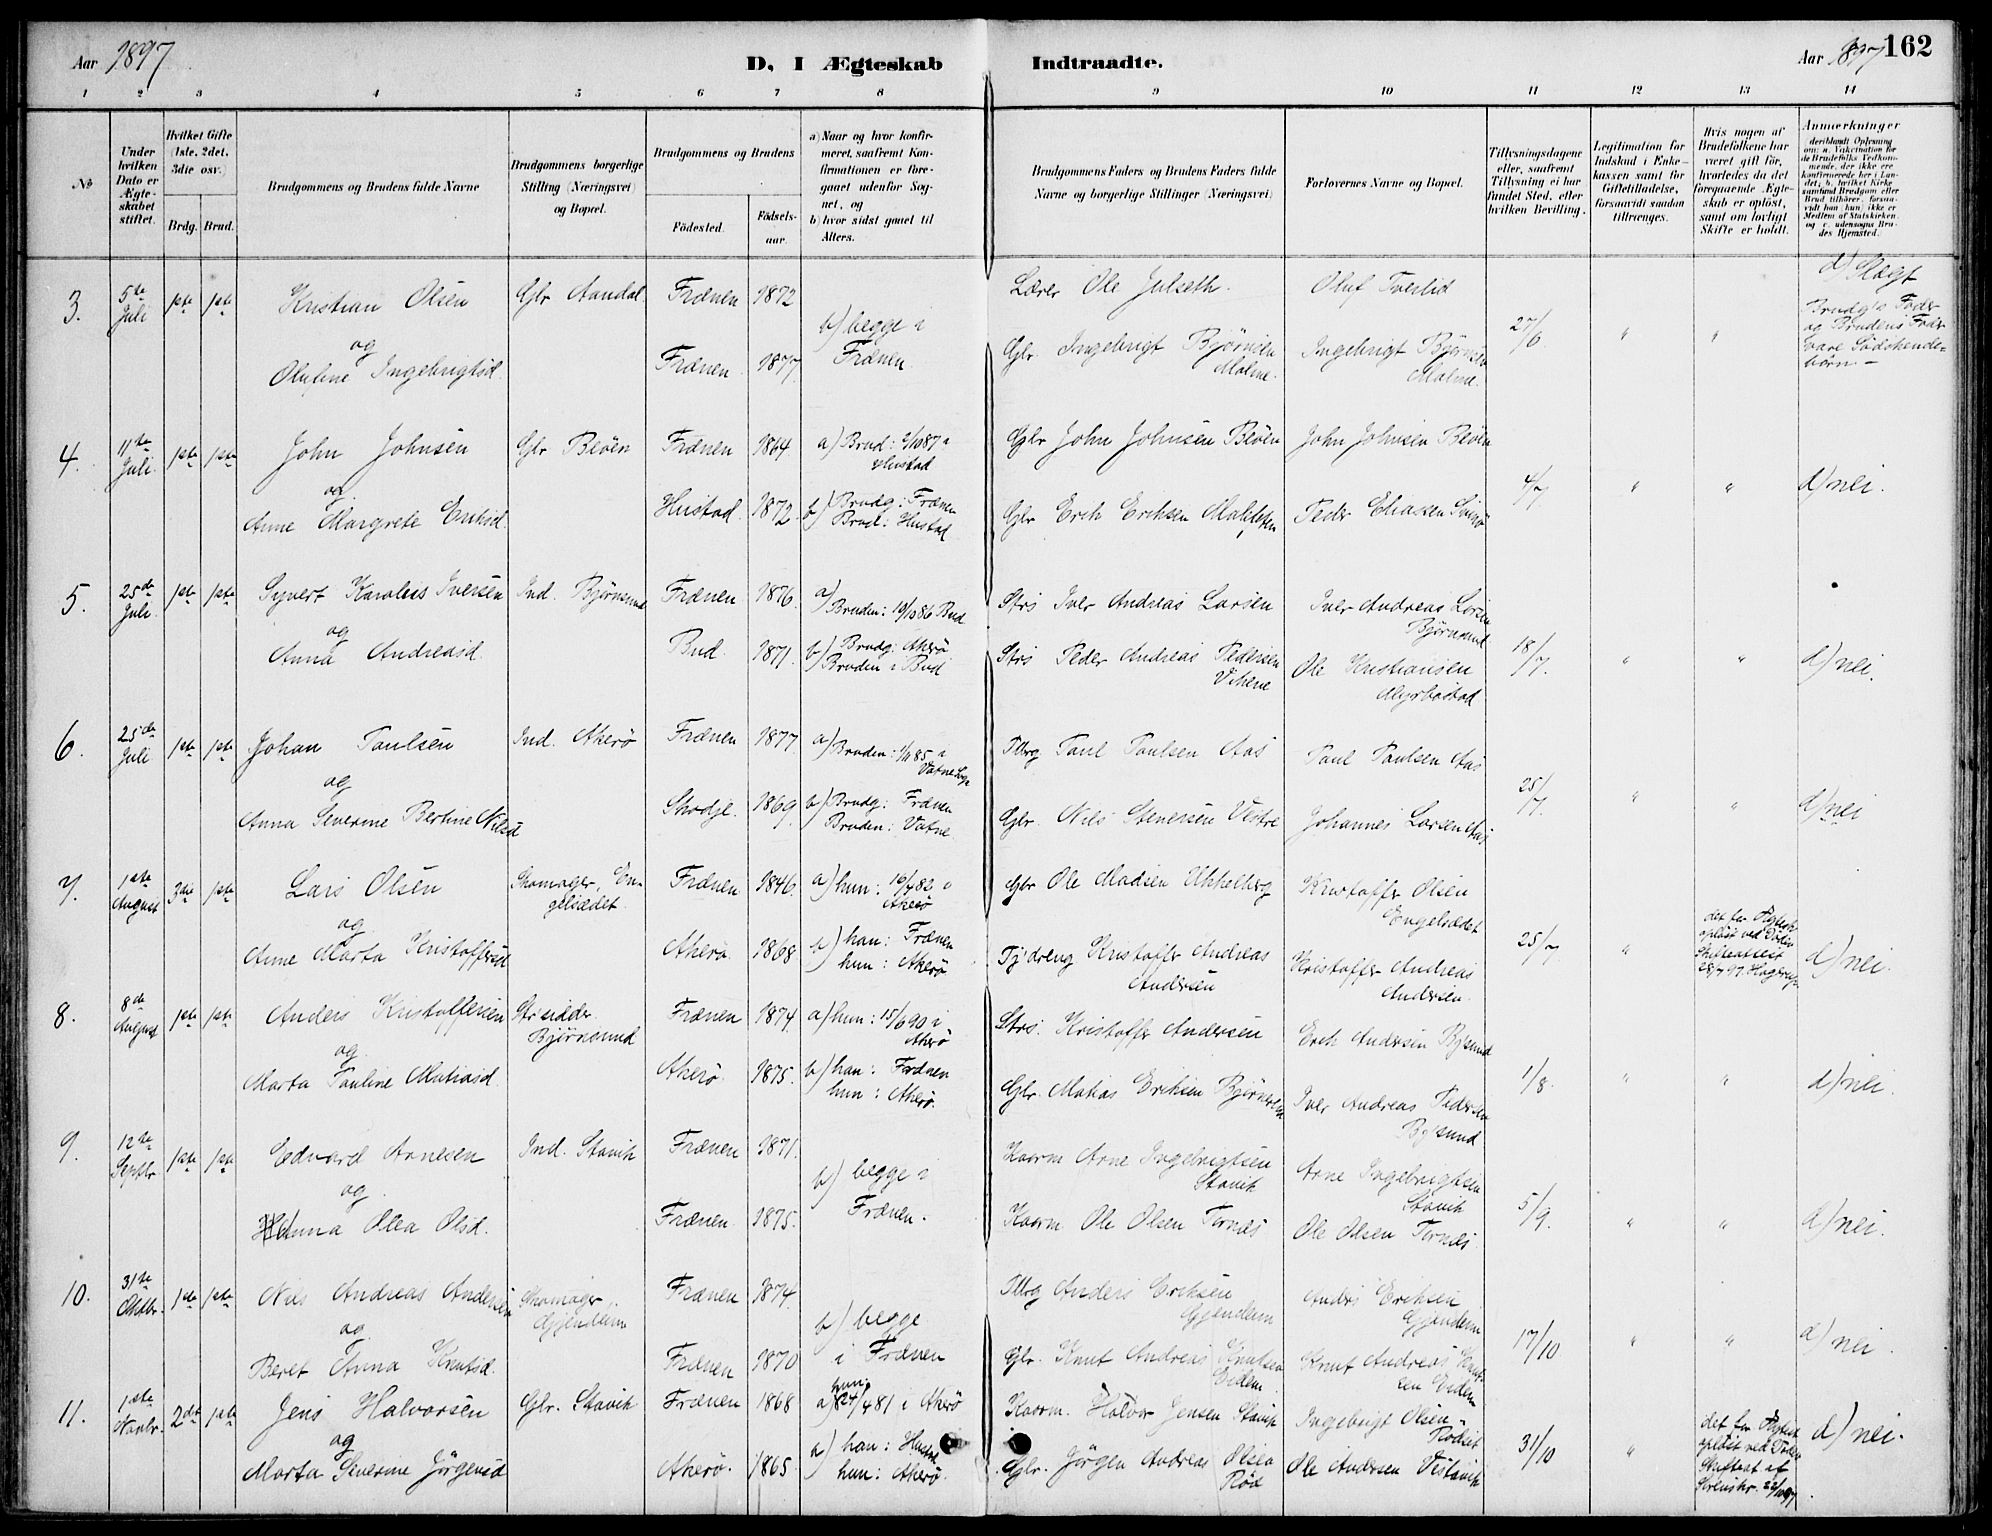 Aar 1897 D, I Ægteskab Indtraadte. Aar 1897 162
1 2 3 4 5 6 7 8 9 10 11 12 13 14
№
Under hvilken Dato er Ægteskabet stiftet.
Hvilket Gifte (1ste, 2det, 3die osv.)
Brdg. Brud.
Brudgommens og Brudens fulde Navne
Brudgommens borgerlige Stilling (Næringsvei) og Bopæl.
Brudgommens og Brudens
Födested.
Födsels-aar.
a) Naar og hvor konfirmeret, saafremt Konfirmationen er foregaaet udenfor Sognet, og
b) hvor sidst gaaet til Alters.
Brudgommens Faders og Brudens Faders fulde Navne og borgerlige Stillinger (Næringsvei)
Forlovernes Navne og Bopæl.
Tillysningsdagene eller, saafremt Tillysning ei har fundet Sted, efter hvilken Bevilling.
Legitimation for Indskud i Enkekassen samt for Giftetilladelse, forsaavidt saadan tiltrænges.
Hvis nogen af Brudefolkene har været gift før, hvorledes da det foregaaende Ægteskab er oplöst, samt om lovligt Skifte er holdt.
Anmærkninger
3. 5te Juli 1ste 1ste Kristian Olsen Glr Aandal Frænen 1872 Lærer Ole Julseth Oluf Tverlid d) Slægt
og b) begge i Frænen 27/6 " " Brudg's Fader og Brudens Fader vare Sødskendebørn
Olufine Ingebrigtsd. Frænen 1877. Glr. Ingebrigt Bjørnsen Malme. Ingebrigt Bjørnsen Malme.
4. 11te Juli 1ste 1ste John Johnsen Glr Beöen Frænen 1864 a) Brud: /10 87 i Hustad Glr John Johnsen Beöen John Johnsen Beöen
og 4/7 " " d) nei.
Anne Margrete Eriksd. Hustad. 1872. b) Brudg: Frænen Brud: Hustad Glr Erik Eriksen Peder Eliassen
5. 25de Juli 1ste 1ste Syvert Karolius Iversen Ind. Bjørnsund Frænen 1876. a) Bruden: 10/10 86 Bud Strs Iver Andreas Larsen Iver Andreas Larsen Bjørnsund
og
Anna Andreasd. Bud. 1871. b) Brudg: Akerø Bruden i Bud Strs Peder Andreas Pedersen Vikene Ole Kristiansen Myrbøstad 18/7. " " d) nei.
6. 25de Juli 1ste 1ste Johan Paulsen Ind. Akerø Frænen 1877 a) Bruden: 1/11 85 i Vatne Sogn Tllvg Paul Paulsen Aas Paul Paulsen Aas
og 25/7. " " d) nei
Anna Severine Bertine Nilsd Skodje. 1869. b) Brudg: Frænen Bruden: Vatne. Glr. Nils Stenersen Vestre Johannes Larsen Aas
7. 1ste August 3die 1ste Lars Olsen Skomager, Engelsædet. Frænen 1846. a) hun: 16/4 82 i Akerø Glr Ole Madsen Ukkelberg Kristoffer Olsen Engelsædet
og
Anne Marta Kristoffersd Akerø. 1868 b) han: Frænen hun: Akerø Tj'dreng Kristoffer Andreas Andersen Kristoffer Andreas Andersen. 25/7. " det før Ægtesk oplöst ved Döden Skifteattest 28/7 97. Hagerup. d) nei.
8. 8de August 1ste 1ste Anders Kristoffersen Strsidder Bjørnsund Frænen 1874. a) hun: 15/6 90 i Akerø Strs. Kristoffer Andersen Erik Andersen Bj'sund
og
Marta Pauline Matiasd. Akerø. 1875. b) han: Frænen hun: Akerø. Glr. Matias Eriksen Iver Andreas Pedersen Bj'sund 1/8. " " d) nei.
9. 12te Septbr 1ste 1ste Edvard Arnesen Ind. Stavik Frænen 1871. Kaarm Arne Ingebrigtsen Stavik Arne Ingebrigtsen Stavik
og b) begge i Frænen.
Anna Olea Olsd. Frænen 1875. Kaarm Ole Olsen Tornæs Ole Olsen Tornæs. 5/9. " " d) nei.
10. 31te Oktbr. 1ste 1ste Nils Andreas Andersen Skomager Gjendem Frænen 1874. Tllvg Anders Eriksen Gjendem Anders Eriksen Gjendem
og b) begge i Frænen 17/10. " " d) nei.
Beret Anna Knutsd. Frænen 1870 Glr. Knut Andreas Knutsen Eidem. Knut Andreas Knutsen Eidem
11. 1ste Novbr. 2det 1ste Jens Halvorsen Glr. Stavik Frænen 1868 a) hun 24/4 81 i Akerø Kaarm. Halvor Jensen Stavik Ingebrigt Olsen Rödset
og 31/10 " det før Ægtesk oplöst ved Döden Skifteat af d) nei.
Marta Severine Jörgensd Akerø. 1865. a) han: Hustad hun: Akerø. Glr. Jörgen Andreas Olsen Röd Ole Andersen Vestavik